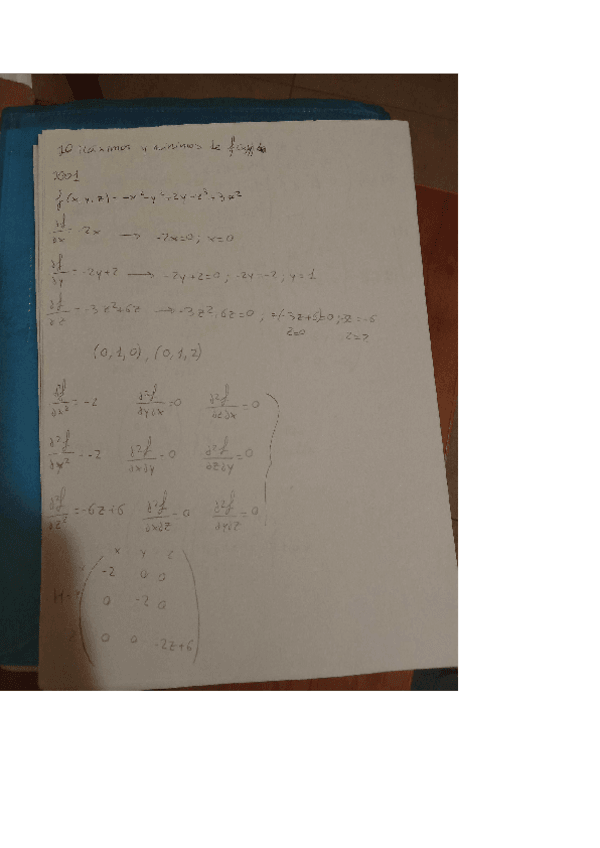 20 máximos y mínimos de
f(x,y,z) = -x²-y²+2y-z³+3z²
∂f/∂x = -2x → -2x=0; x=0
∂f/∂y = -2y+2 → -2y+2=0; -2y=-2; y=1
∂f/∂z = -3z²+6z → -3z²+6z=0; z(-3z+6)=0; -3z=-6
z=0 z=2
(0,1,0), (0,1,2)
∂²f/∂x² = -2 ∂²f/∂y∂x = 0 ∂²f/∂z∂x = 0
∂²f/∂y² = -2 ∂²f/∂x∂y = 0 ∂²f/∂z∂y = 0
∂²f/∂z² = -6z+6 ∂²f/∂x∂z = 0 ∂²f/∂y∂z = 0
x y z
-2 0 0
H = 0 -2 0
z 0 0 -2z+6